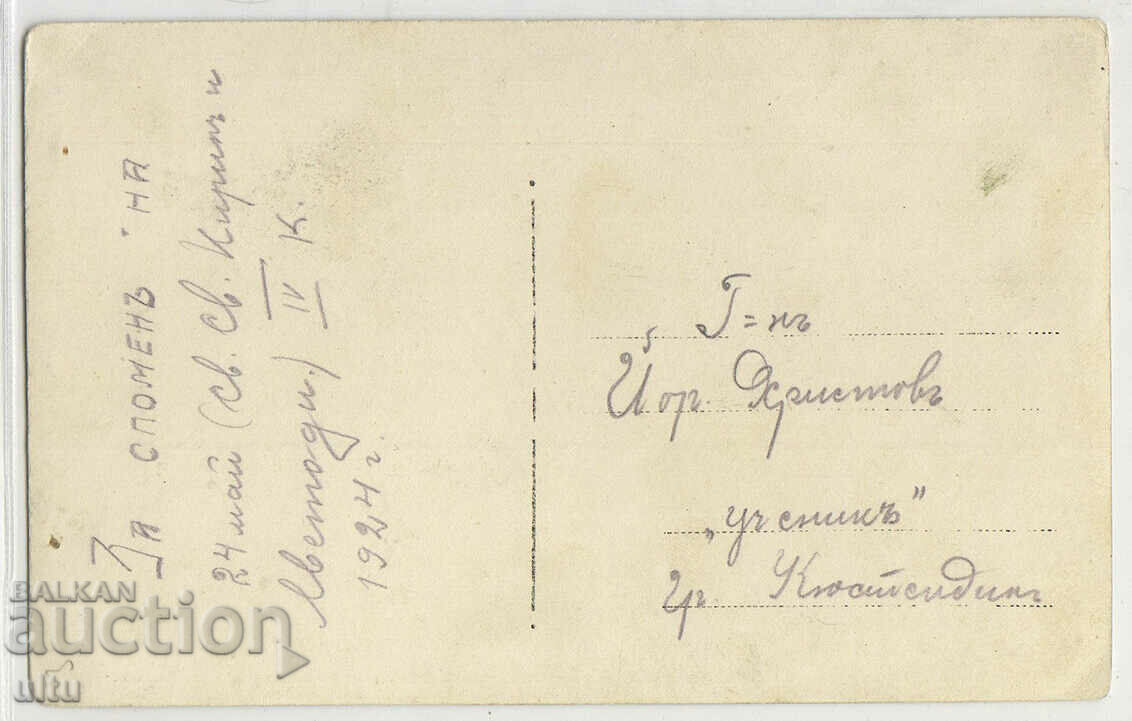 За споменъ на
24 май (св. Св. Кирилъ и
Методи.) IV К.
1924 г.
Г=нъ
Йор. Христовъ
„ученикъ"
гр. Кюстендилъ
BALKAN
auction
ultu